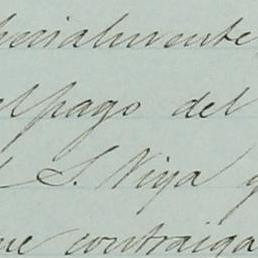 pecialmente
al pago del
S. Niya y
que contraiga